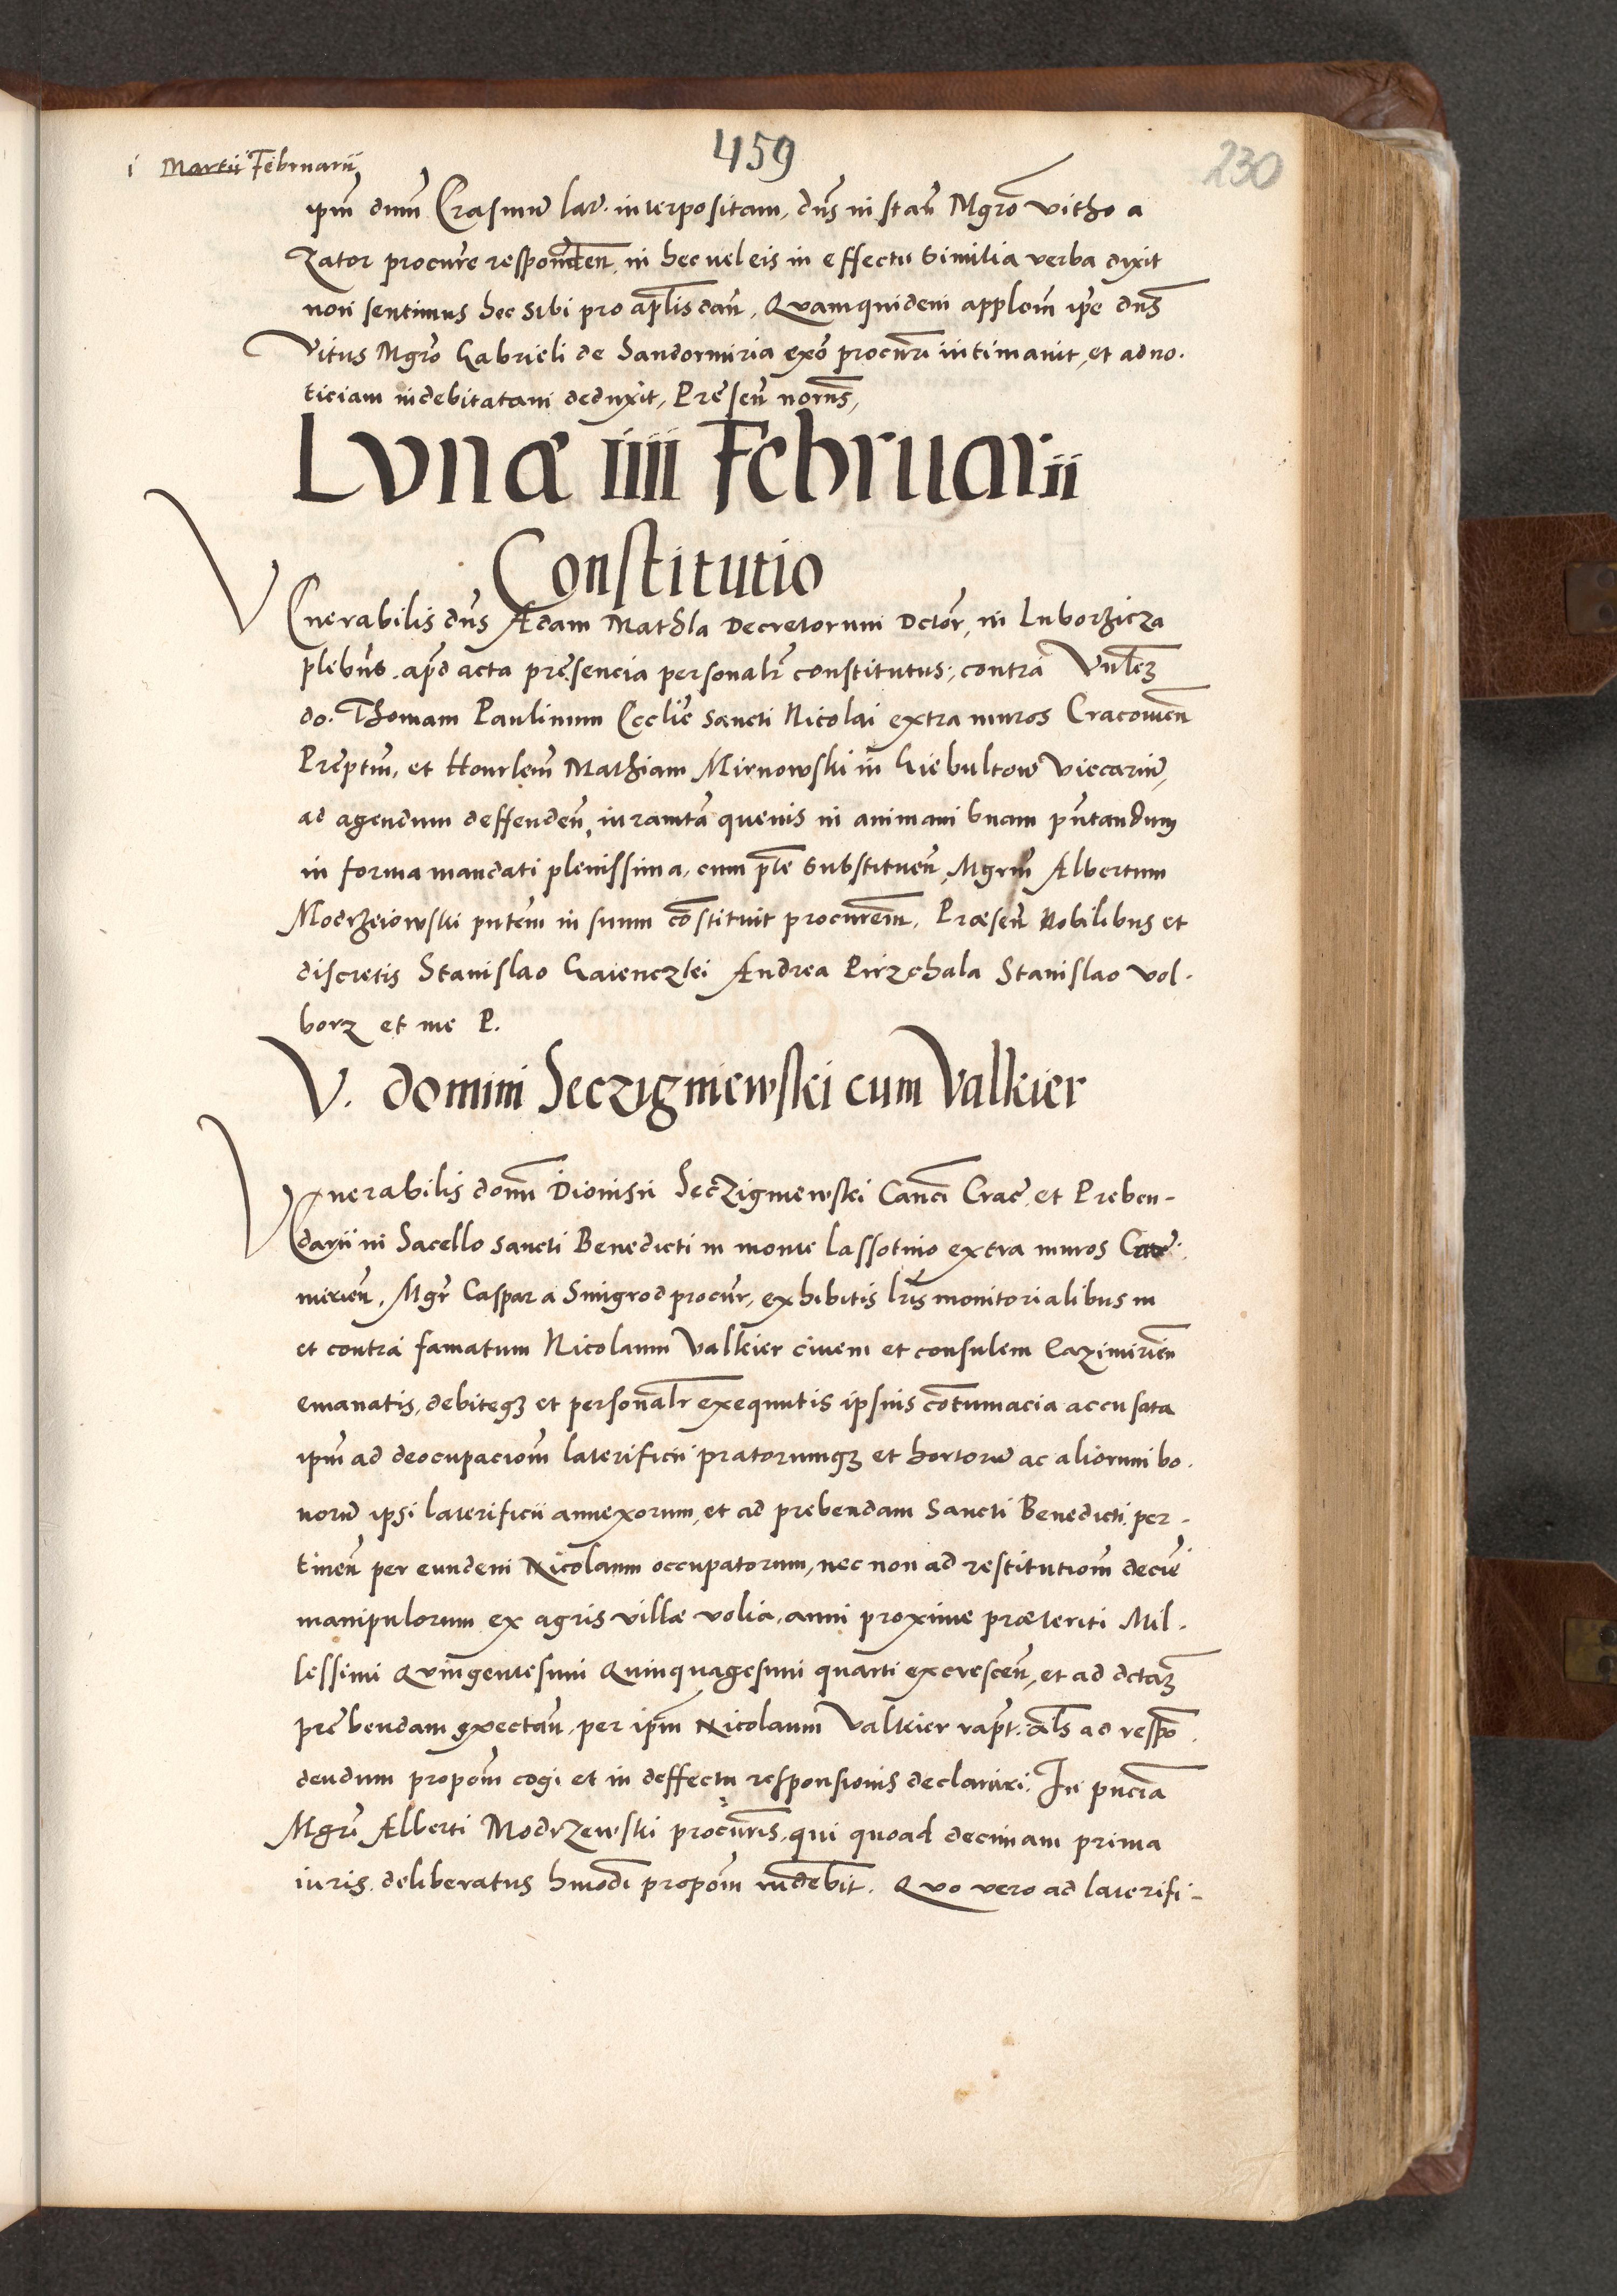 459
230
i Martii Februarii
ipm̃ dnm̃ Erasmũ lat̃. interpositam, dñs in stañ Mgrõ Vitho a
Zator procure responden̄. in hec uel eis in effectu similia verba dixit
non sentimus hec sibi pro ap̄lis dañ, Quamquidem applom̃ ip̃e dñs
Vitus Mgrõ Gabrieli de Sandomiria exõ procuri intimauit, et ad no-
ticiam indebitatam deduxit, Presen̄ norũs,
Lunæ iiii Februarii
Constitutio
Venerabilis dñs Adam Mathla Decretorum Dctor̃, in Luborzicza
plebñs. apd̃ acta presencia personalr̃ constitutus, contra Vn̄lem̄
do. Thomam Paulinum Ecclie sancti Nicolai extra muros Cracouien̄
Preptm̃, et Honrlem̃ Mathiam Mirnowski in Giebultow Viccariũ,
ad agendum deffenden̄, iuramtã queuis in animam suam pñtandum
in forma mandati plenissima, cum p̄te substituen̄, Mgrm̃ Albertum
Modrzeiowski pñtem in suum cõstituit procurem̄. Præsen̄ Nobilibus et
discretis Stanislao Gaienczki Andrea Pirzchala Stanislao Vol-
borz et me P.
V. domini Seczigniewski cum Valkier
Venerabilis domñ Dionisii Seczigniewski Canc̃i Crac̃. et Preben-
darii in Sacello sancti Benedicti in monte Lassotino extra muros
mirien̄. Mgr̃ Caspar a Smigrod procur̃, exhibitis lr̃is monitorialibus in
et contra famatum Nicolaum Valkier ciuem et consulem Cazimirien̄
emanatis, debiteq3 et personalr̃ exequutis ipsius cõtumacia accusata
ipm̃ ad deocupaciom̃ laterificii pratorumq3 et hortorũ ac aliorum bo-
norũ ipsi laterificii annexorum, et ad prebendam Sancti Benedicti per-
tinen̄ per eundem Nicolaum occupatorum, nec non ad restitutiom̃ decie
manipulorum ex agris villæ volia, anni proxime præteriti Mil-
lessimi Quingentesimi Quinquagesimi quarti excrescen̄, et ad dctam̄
prebendam spectan̄, per ipm̃ Nicolaum Valkier rapt̃. als̃ ad respõ-
dendum propom̃ cogi et in deffectu responsionis declarari. In pn̄cia
Mgri Alberti Modrzewski procuris, qui quoad decimam prima
iuris deliberatus hmodi propom̃ rn̄debit. Quo vero ad laterifi-